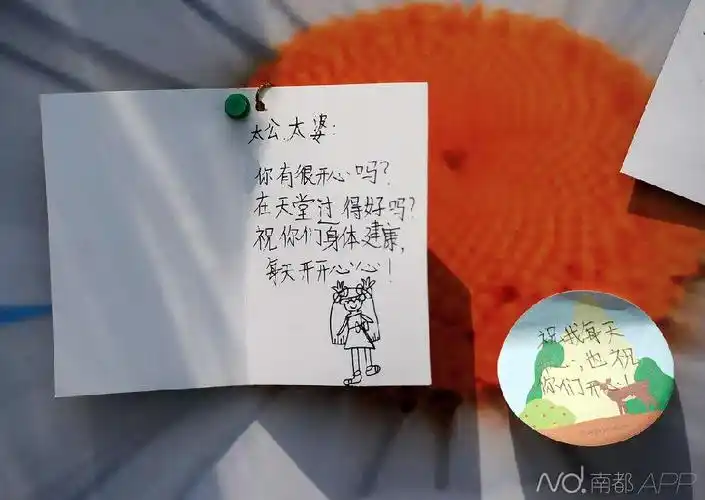 太公.太婆:
你有很开心吗?
在天堂过得好吗?
祝你们身体健康,
每天开开心心!
祝我每天
,也祝
你们开心!
Nd.南都APP